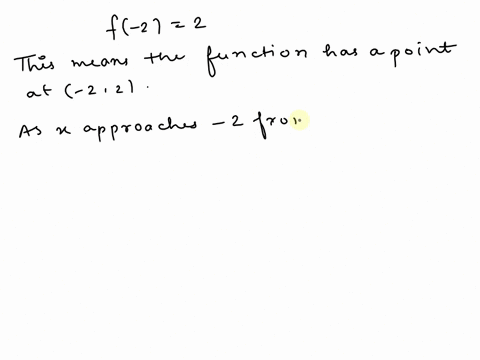 f(-2) = 2
This means the function has a point
at (-2, 2).
As x approaches -2 from